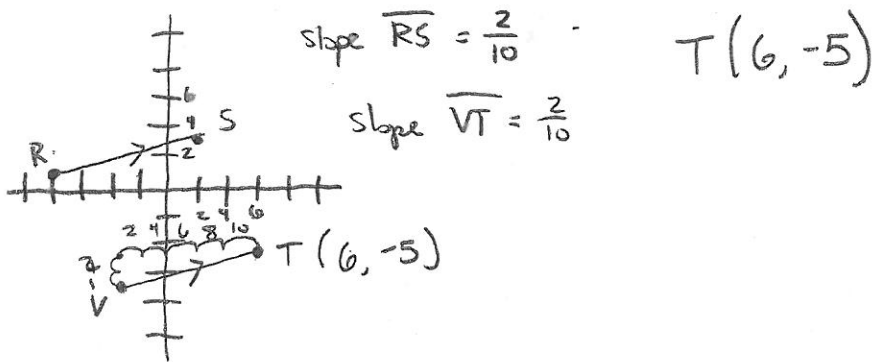 slope RS = 2/10
T(6, -5)
slope VT = 2/10
6
4
S
2
R
2 4 6
2 4 6 8 10
T(6, -5)
2
V